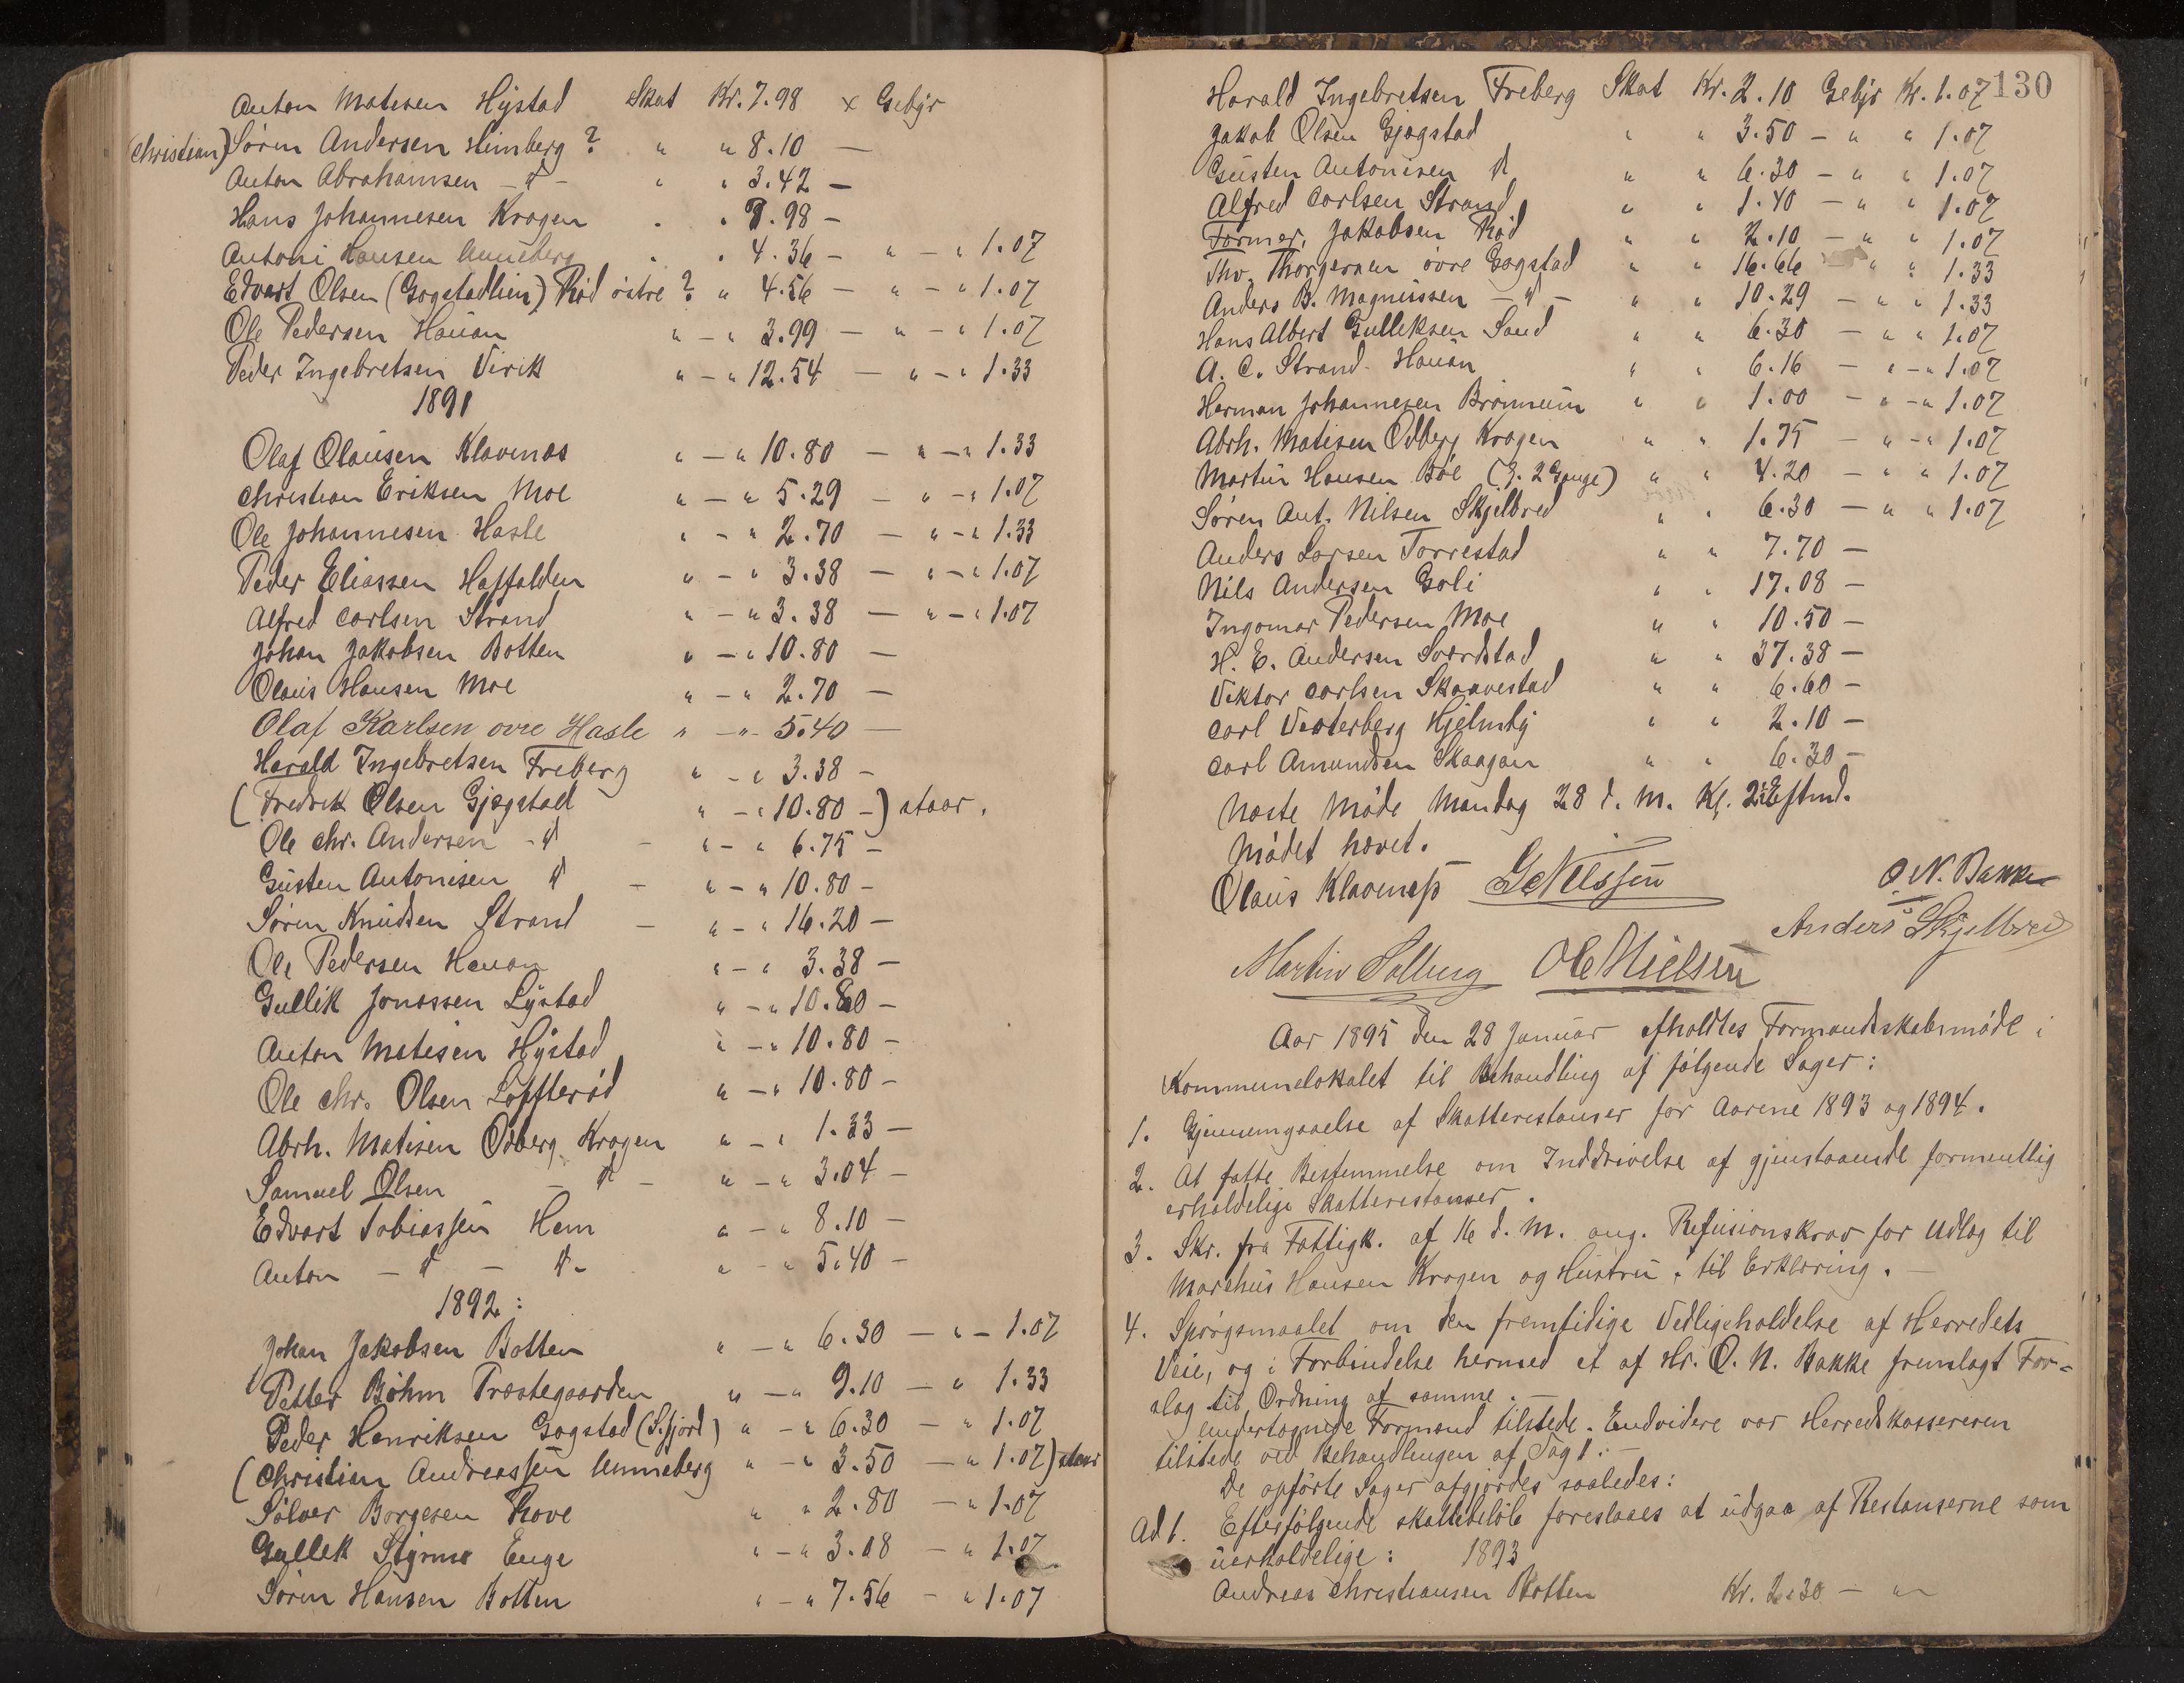 Anton Matisen Hystad Skat Kr. 7.98 x Gebyr
(Christian) Søren Andersen Himberg? " " 8.10 —
Anton Abrahamsen — d — " " 3.42 —
Hans Johannesen Krogen " " 7.98 —
Antoni Hansen Unneberg " " 4.36 — " — " 1.07
Edvart Olsen (Gogstadlien) Rød østre? " 4.56 — " — " 1.07
Ole Pedersen Hauan " — " 3.99 — " — " 1.07
Peder Ingebretsen Virik " — " 12.54 — " — " 1.33
1891
Olaf Olausen Klavenæs " — " 10.80 — " — " 1.33
Christian Eriksen Moe " — " 5.29 — " — " 1.07
Ole Johannesen Hasle " — " 2.70 — " — " 1.33
Peder Eliassen Haffalden " — " 3.38 — " — " 1.07
Alfred Carlsen Strand " — " 3.38 — " — " 1.07
Johan Jakobsen Botten " — " 10.80 —
Olaus Hansen Moe " — " 2.70 —
Olaf Karlsen øvre Hasle " — " 5.40 —
Harald Ingebretsen Freberg " — " 3.38 —
(Fredrik Olsen Gjøgstad " — " 10.80 —) staar.
Ole Chr. Andersen — d — " — " 6.75 —
Gusten Antonisen d — " — " 10.80 —
Søren Knudsen Strand — " — " 16.20 —
Ole Pedersen Hauan " — " 3.38 —
Gullik Jonassen Lystad " — " 10.80 —
Anton Matisen Hystad " — " 10.80 —
Ole Chr. Olsen Løffterød " — " 10.80 —
Abrh. Matisen Ødberg Krogen " — " 1.33 —
Samuel Olsen — d — " — " 3.04 —
Edvart Tobiassen Hem " — " 8.10 —
Anton — d — d — " — " 5.40 —
1892:
Johan Jakobsen Botten " — " 6.30 — " — 1.07
Petter Bøhm Præstegaarden " — " 9.10 — " 1.33
Peder Henriksen Gogstad (S.fjord) " — " 6.30 — " 1.07
(Christian Andreassen Unneberg " — " 3.50 — " 1.07) staar
Sølver Borgesen Rove " " 2.80 — " 1.07
Gullik Styrmo Enge " — " 3.08 — " 1.07
Søren Hansen Botten " — " 7.56 — " 1.07
130
Harald Ingebretsen Freberg Skat Kr. 2.10 Gebyr Kr. 1.07
Jakob Olsen Gjøgstad " " 3.50 — " " 1.07
Gusten Antonisen d " " 6.30 — " " 1.07
Alfred Carlsen Strand " " 1.40 — " " 1.07
Former. Jakobsen Rød " " 2.10 — " " 1.07
Thv. Thorgersen øvre Gogstad " " 16.66 — " " 1.33
Anders B. Magnussen — d — " " 10.29 — " " 1.33
Hans Albert Gulliksen Sand " " 6.30 — " " 1.07
A. C. Strand Hauan " " 6.16 — " — " 1.07
Herman Johannesen Brønnum " " 1.00 — " — " 1.07
Abrh. Matisen Ødberg Krogen " " 1.75 — " — " 1.07
Martin Hansen Bøe (J. 2 Gange) " " 4.20 — " " 1.07
Søren Ant. Nilsen Skjelbred " " 6.30 — " " 1.07
Anders Larsen Torrestad " " 7.70 —
Nils Andersen Goli " " 17.08 —
Ingomar Pedersen Moe " " 10.50 —
H. E. Andersen Sværdstad " " 37.38 —
Viktor Carlsen Skaavestad " " 6.60 —
Carl Vesterberg Hjelmby " " 2.10 —
Carl Amundsen Skaagan " " 6.30 —
Næste Møde Mandag 28 d. M. Kl. 2 Eftmd.
Mødet hævet.
Olaus Klavenæss G Nilssen O. N. Bakke
Anders Skjelbred
Martin Solberg Ole Nielsen
Aar 1895 den 28 Januar afholdtes Formandskabsmøde i
Kommunelokalet til Behandling af følgende Sager:
1. Gjennemgaaelse af Skatterestanser for Aarene 1893 og 1894.
2. At fatte Bestemmelse om Inddrivelse af gjenstaaende formentlig
erholdelige Skatterestanser.
3. Skr. fra Fattigk. af 16 d. M. ang. Refusionskrav for Udlæg til
Marthius Hansen Krogen og Hustru, til Erklæring. —
4. Spørgsmaalet om den fremtidige Vedligeholdelse af Herredets
Veie, og i Forbindelse hermed et af Hr. O. N. Bakke fremlagt For=
slag til Ordning af samme. —
undertegnede Formænd tilstede. Endvidere var Herredskassereren
tilstede ved Behandlingen af Sag 1. —
De opførte Sager afgjordes saaledes:
Ad 1. Efterfølgende Skattebeløb foreslaaes at udgaa af Restanserne som
uerholdelige: 1893
Andreas Christiansen Botten Kr. 2.30 — "